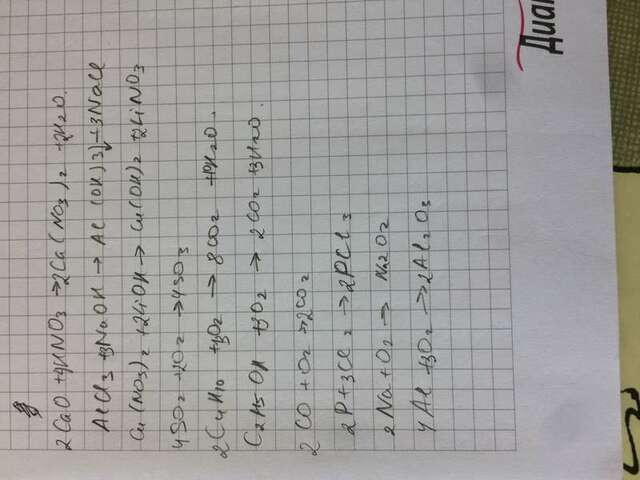 2CaO + 4HNO3 → 2Ca(NO3)2 + 2H2O.
AlCl3 + 3NaOH → Al(OH)3↓ + 3NaCl
Cu(NO3)2 + 2LiOH → Cu(OH)2 + 2LiNO3
4SO2 + 2O2 → 4SO3
2C4H10 + 13O2 → 8CO2 + 10H2O.
C2H5OH + 3O2 → 2CO2 + 3H2O.
2CO + O2 → 2CO2
2P + 3Cl2 → 2PCl3
2Na + O2 → Na2O2
4Al + 3O2 → 2Al2O3
Диа